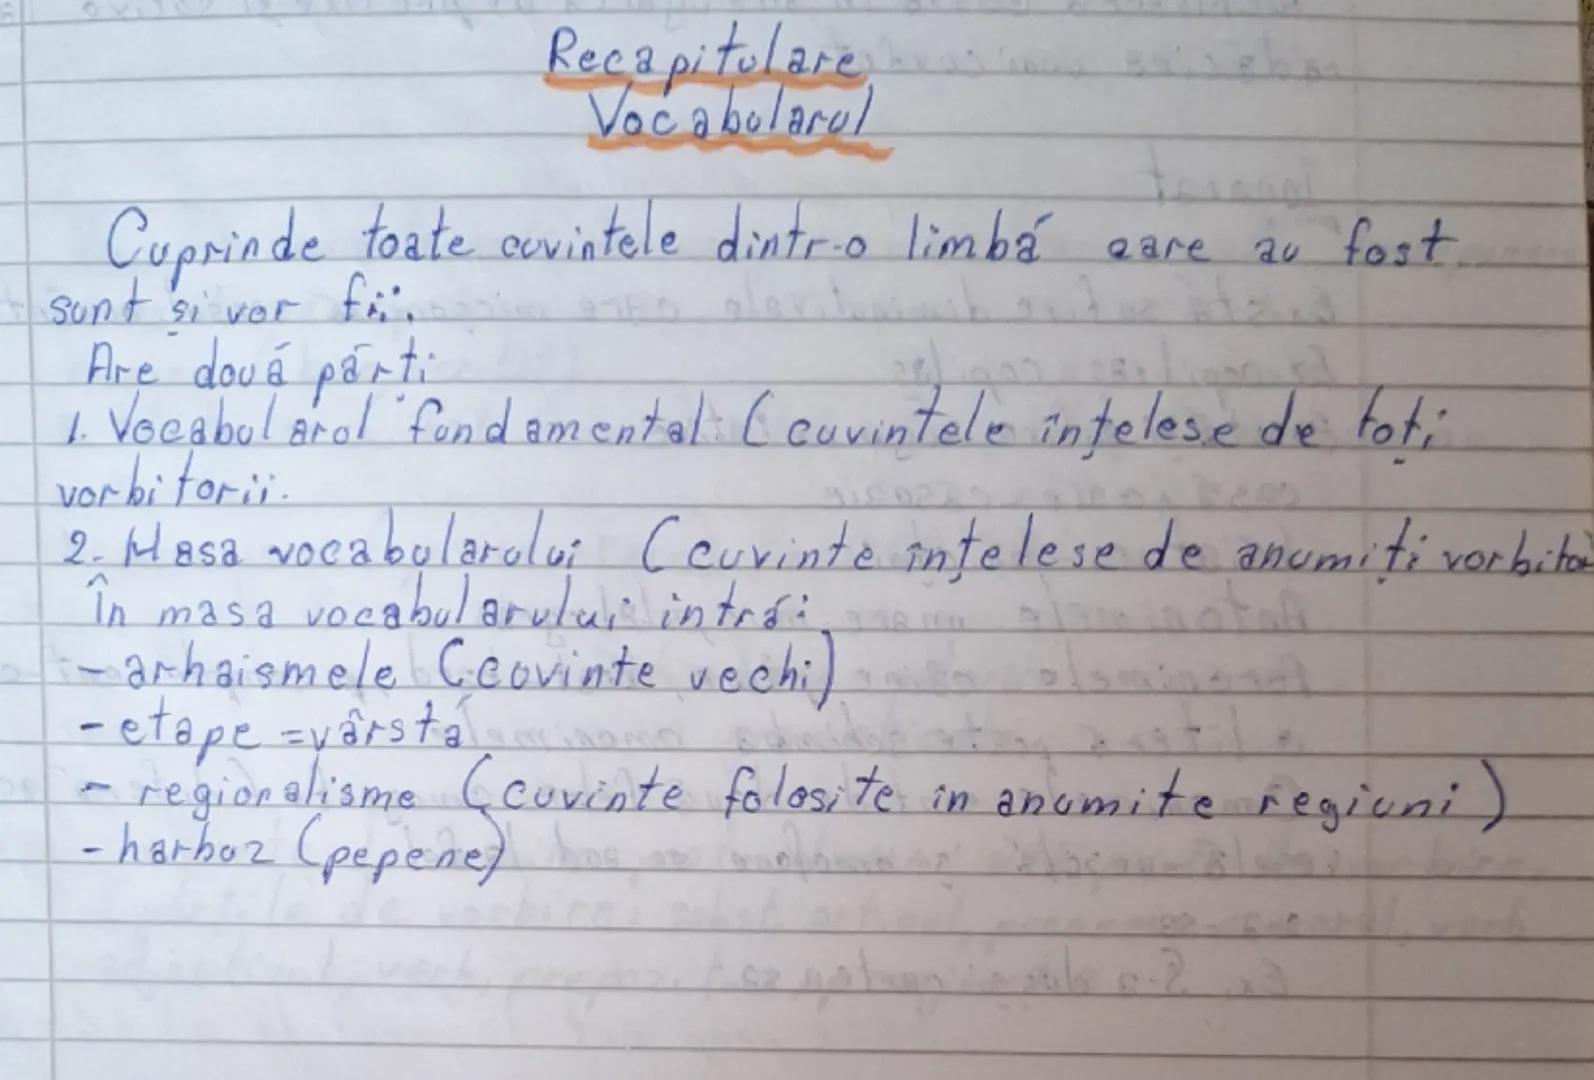 Recapitulare
Vocabularul
Cuprinde toate cuvintele dintr-o limbă care au fost
sunt și vor fii.
Are două părți
1. Vocabularul fundamental (cuvintele înțelese de toți
vorbitorii.
2. Masa vocabularului (cuvinte înțelese de anumiți vorbitor
În masa vocabularului intră:
- arhaismele (cuvinte vechi)
- etape = vârstă
- regionalisme (cuvinte folosite in anumite regiuni)
- harbuz (pepene)